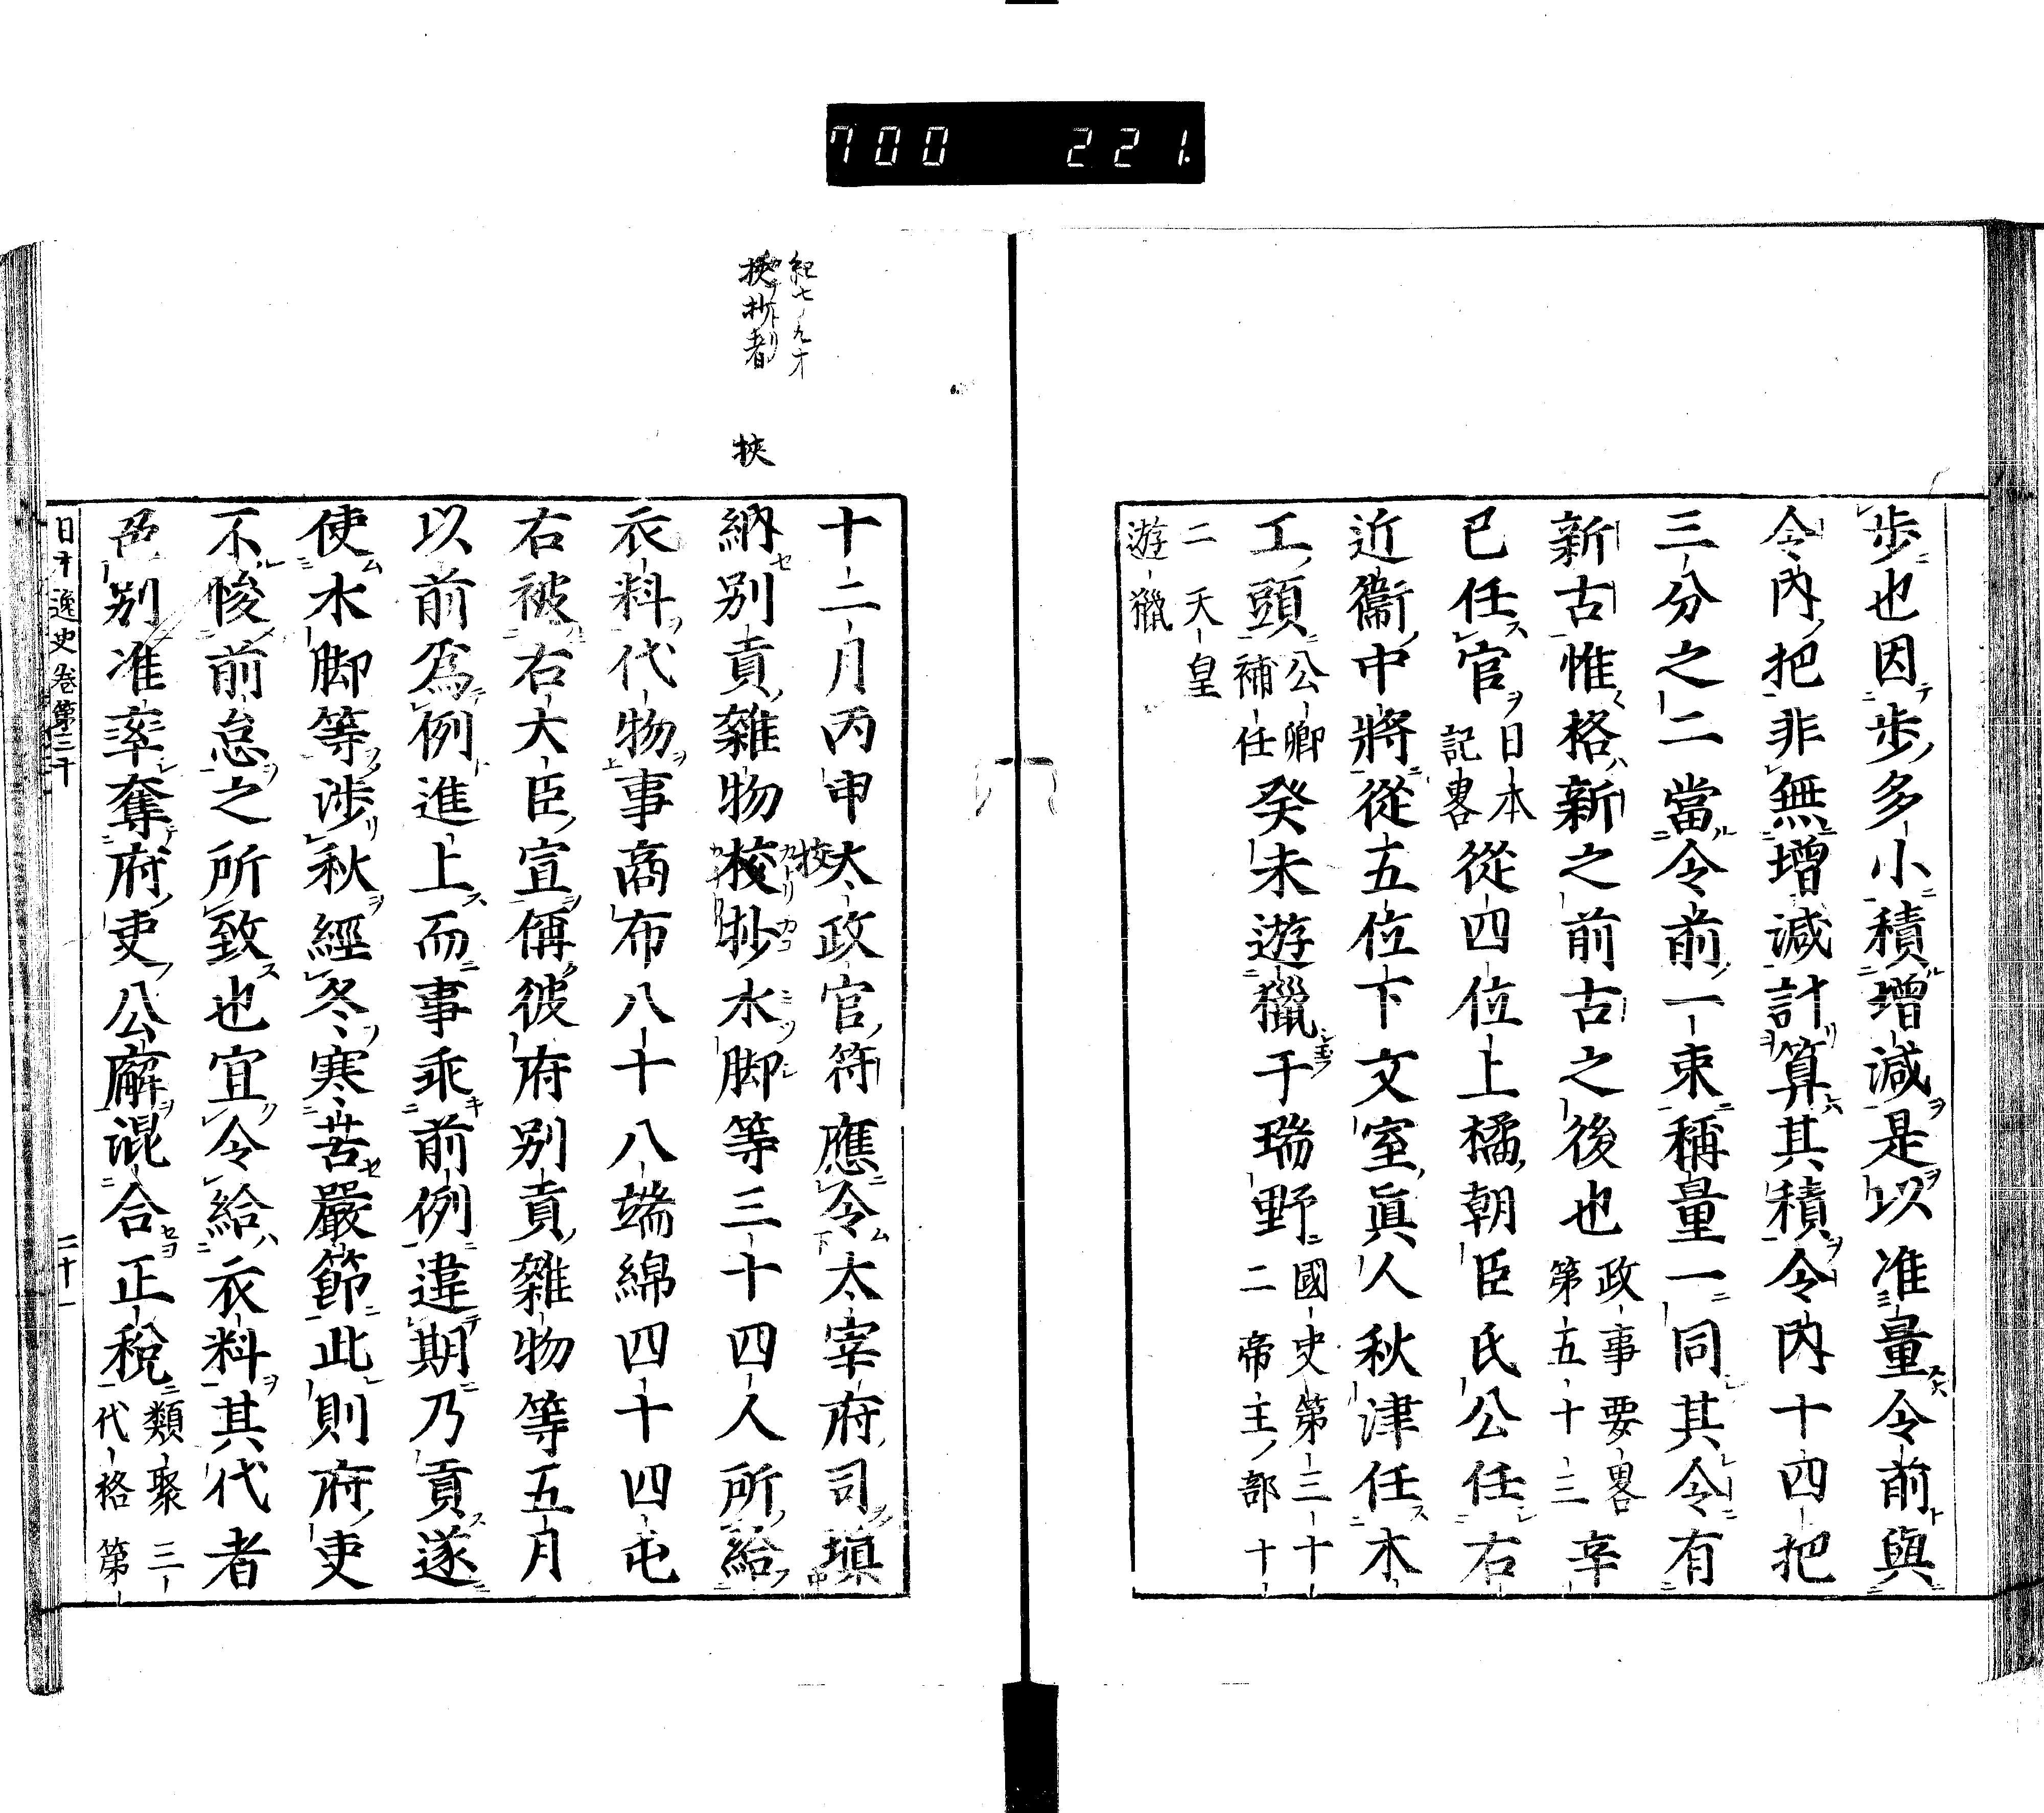 700 221.
歩也因歩多小積増減是以准量令前與
令内把非無増減計算其積令内十四把
三分之二當令前一束稱量一同其令有
新古惟格新之前古之後也政事要畧第五十三辛
巳任官日本記畧從四位上橘朝臣氏公任右
近衞中將從五位下文室眞人秋津任木
工頭公卿補任癸未遊獵于瑞野國史第三十二帝主部十
二天皇遊獵
紀七ノ九才
挾抄者
挾
十二月丙申太政官符應令太宰府司塡
納別貢雜物挍抄水脚等三十四人所給
衣料代物事商布八十八端綿四十四屯
右被右大臣宣偁彼府別貢雜物等五月
以前爲例進上而事乖前例違期乃貢遂
使水脚等渉秋經冬寒苦嚴節此則府吏
不悛前怠之所致也宜令給衣料其代者
色別准率奪府吏公廨混合正税類聚三代格第
日本逸史卷第三十 二十一